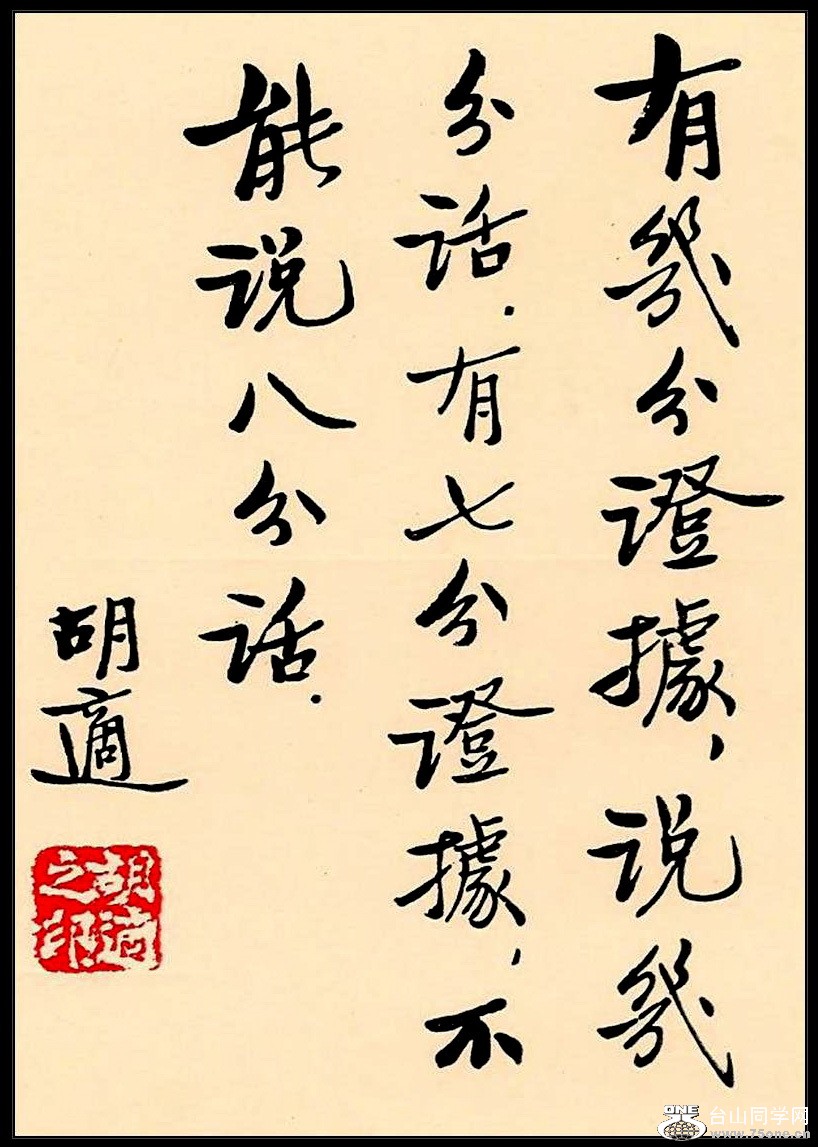 有幾分證據，说幾
分话．有七分證據，不
能说八分话．
胡適
胡適之印
ONE
台山同学网
www.75one.cn